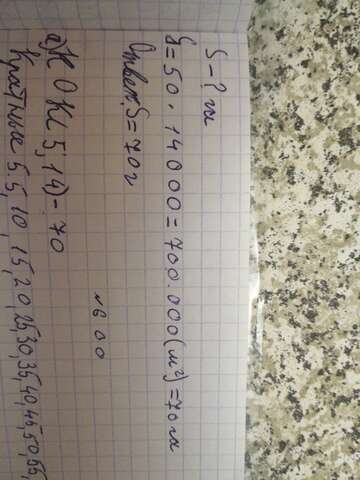 S - ? га
S = 50 · 14000 = 700.000 (м²) = 70 га
Ответ: S = 70 г
№ 600
а) НОК (5; 14) = 70
Кратные 5: 5, 10, 15, 20, 25, 30, 35, 40, 45, 50, 55,